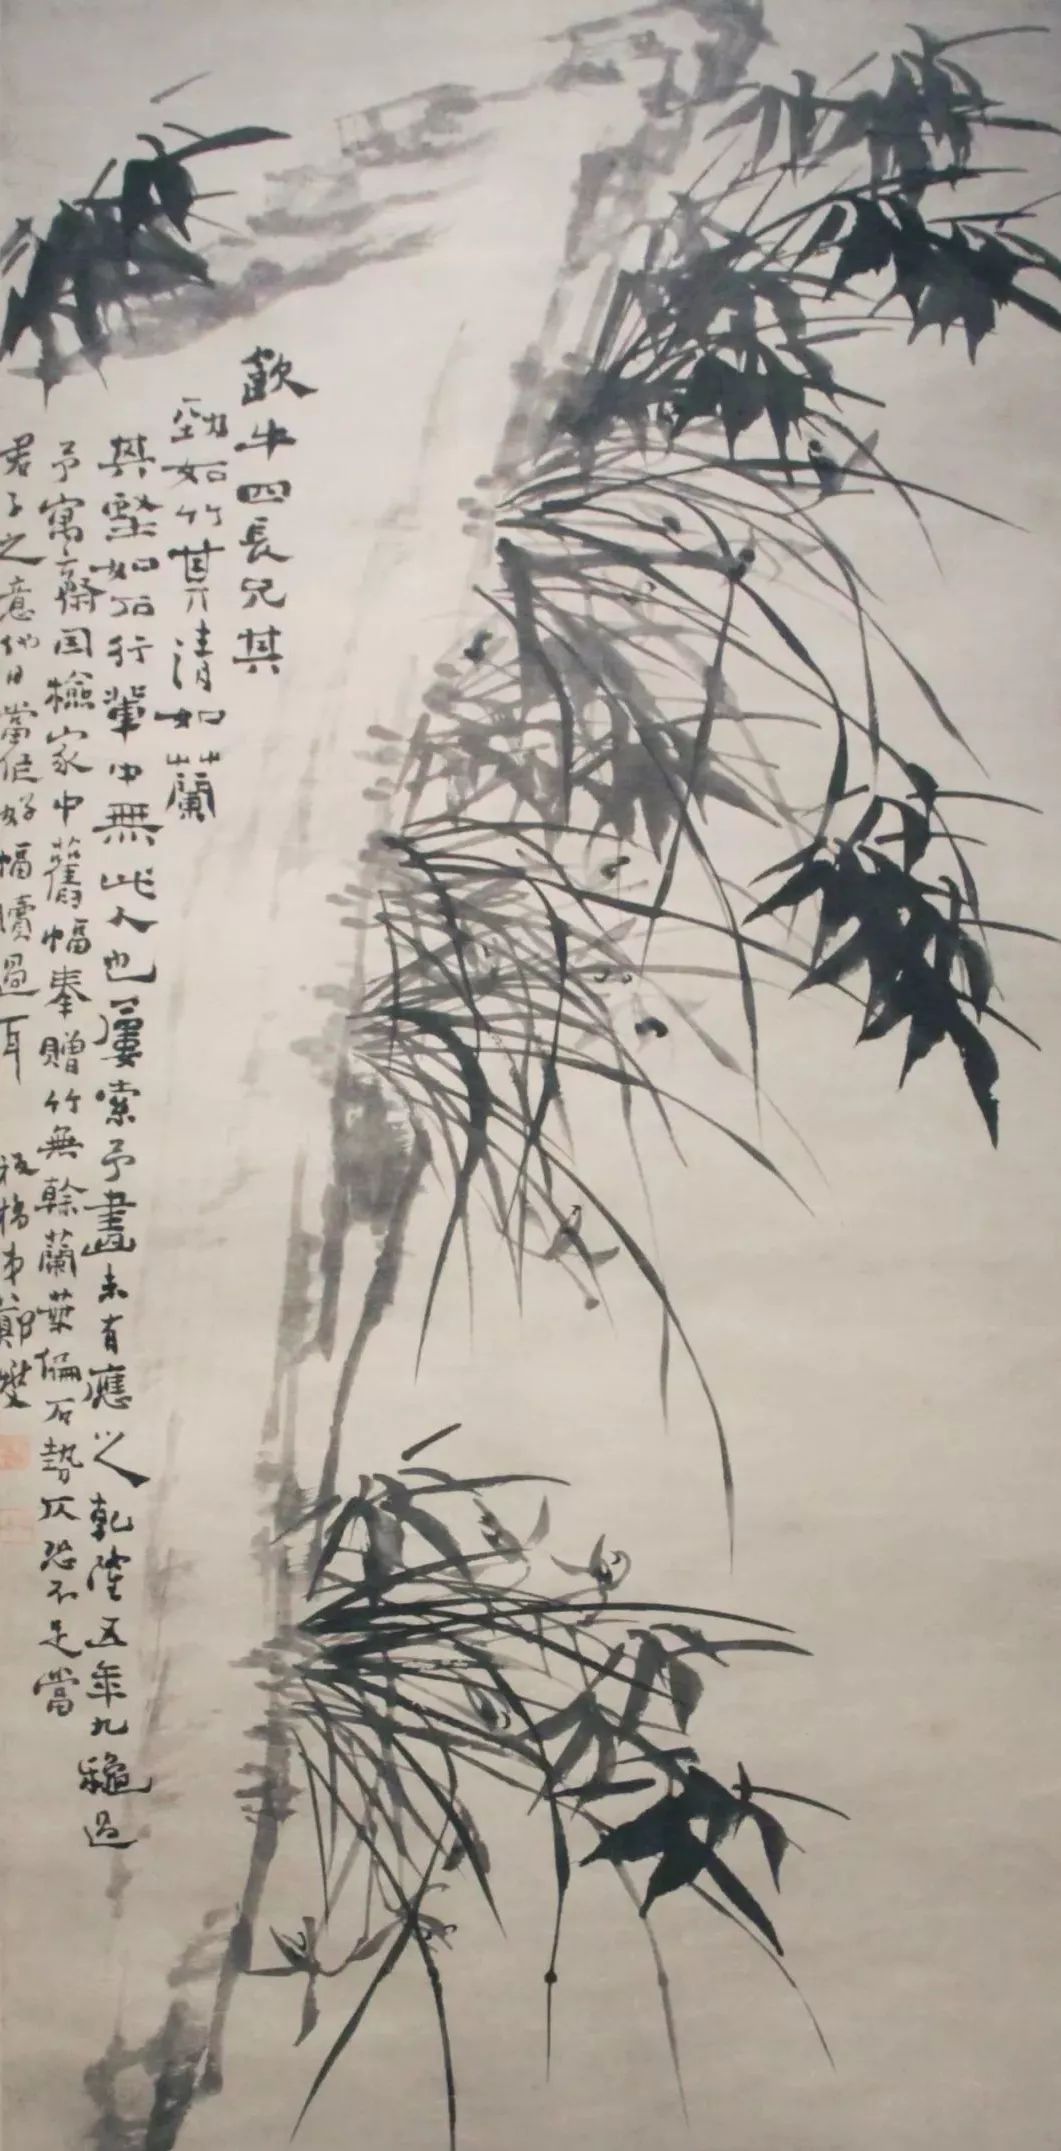 歙牛四長兄其
勁如竹其清如蘭
其堅如石行輩中無此人也屢索予畫未有應之乾隆五年九龝過
予寓齋因檢家中舊幅奉贈竹無幹蘭葉偏石勢仄恐不足當
君子之意他日當作好幅贖過耳 板橋弟鄭燮